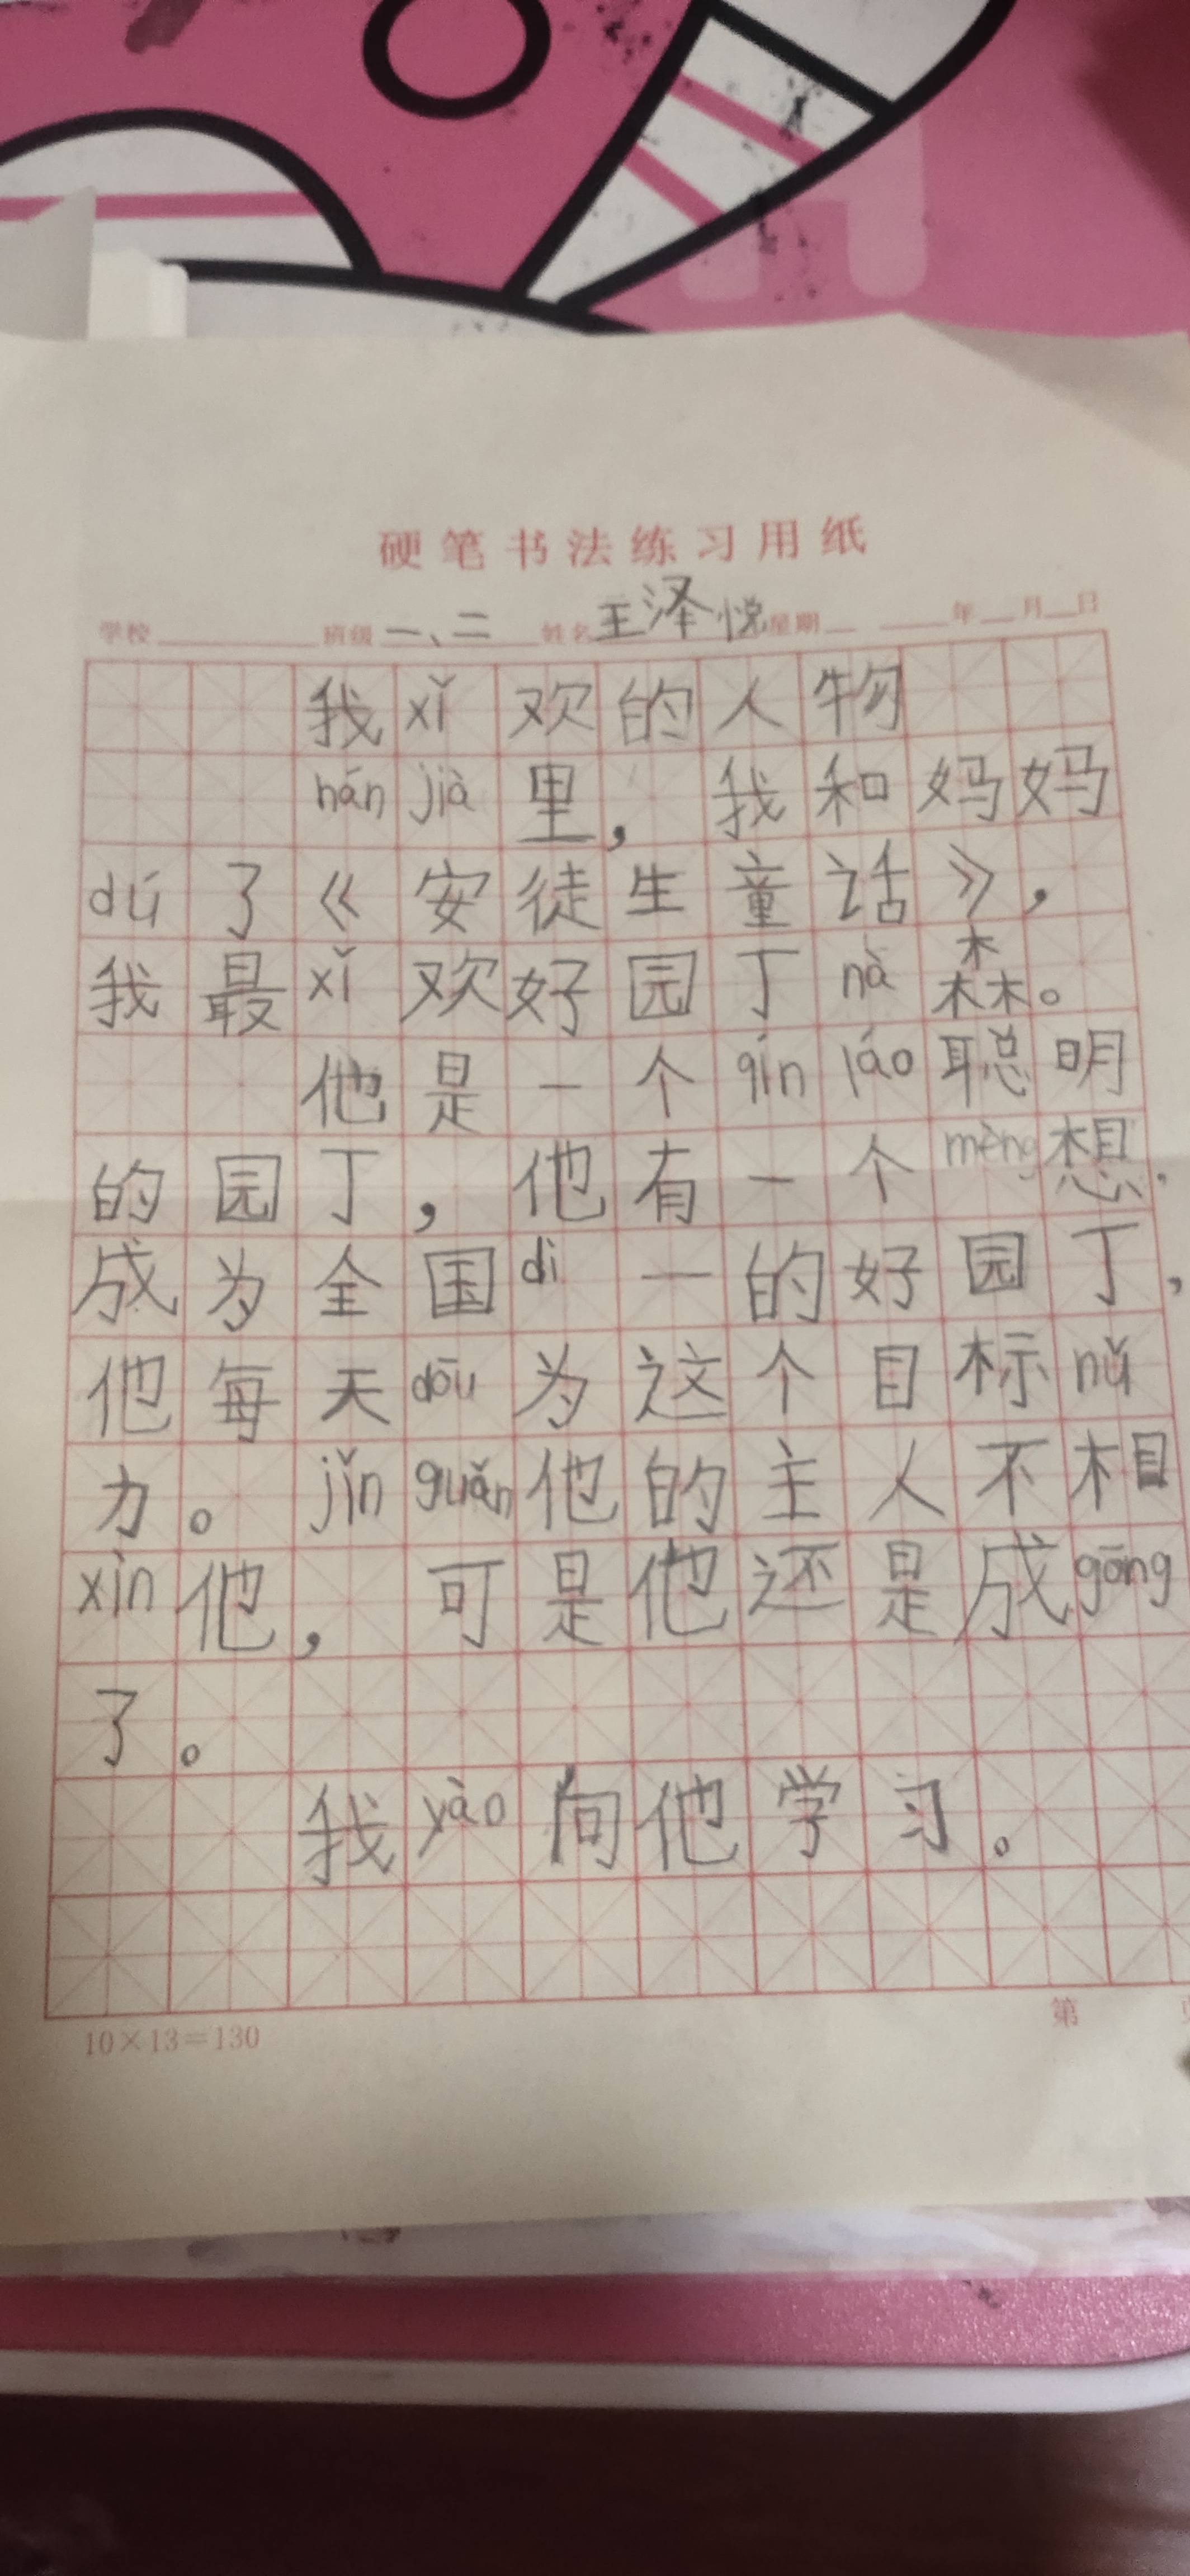 硬笔书法练习用纸
学校 班级 一、二 姓名 王泽悦 星期 年 月 日
我 xǐ 欢的人物
hán jià 里，我和妈妈
dú 了《安徒生童话》，
我最 xǐ 欢好园丁 nà 森。
他是一个 qín láo 聪明
的园丁，他有一个 mèng 想，
成为全国 dì 一的好园丁，
他每天 dōu 为这个目标 nǔ
力。jǐn guǎn 他的主人不相
xìn 他，可是他还是成 gōng
了。
我 yào 向他学习。
10×13=130
第